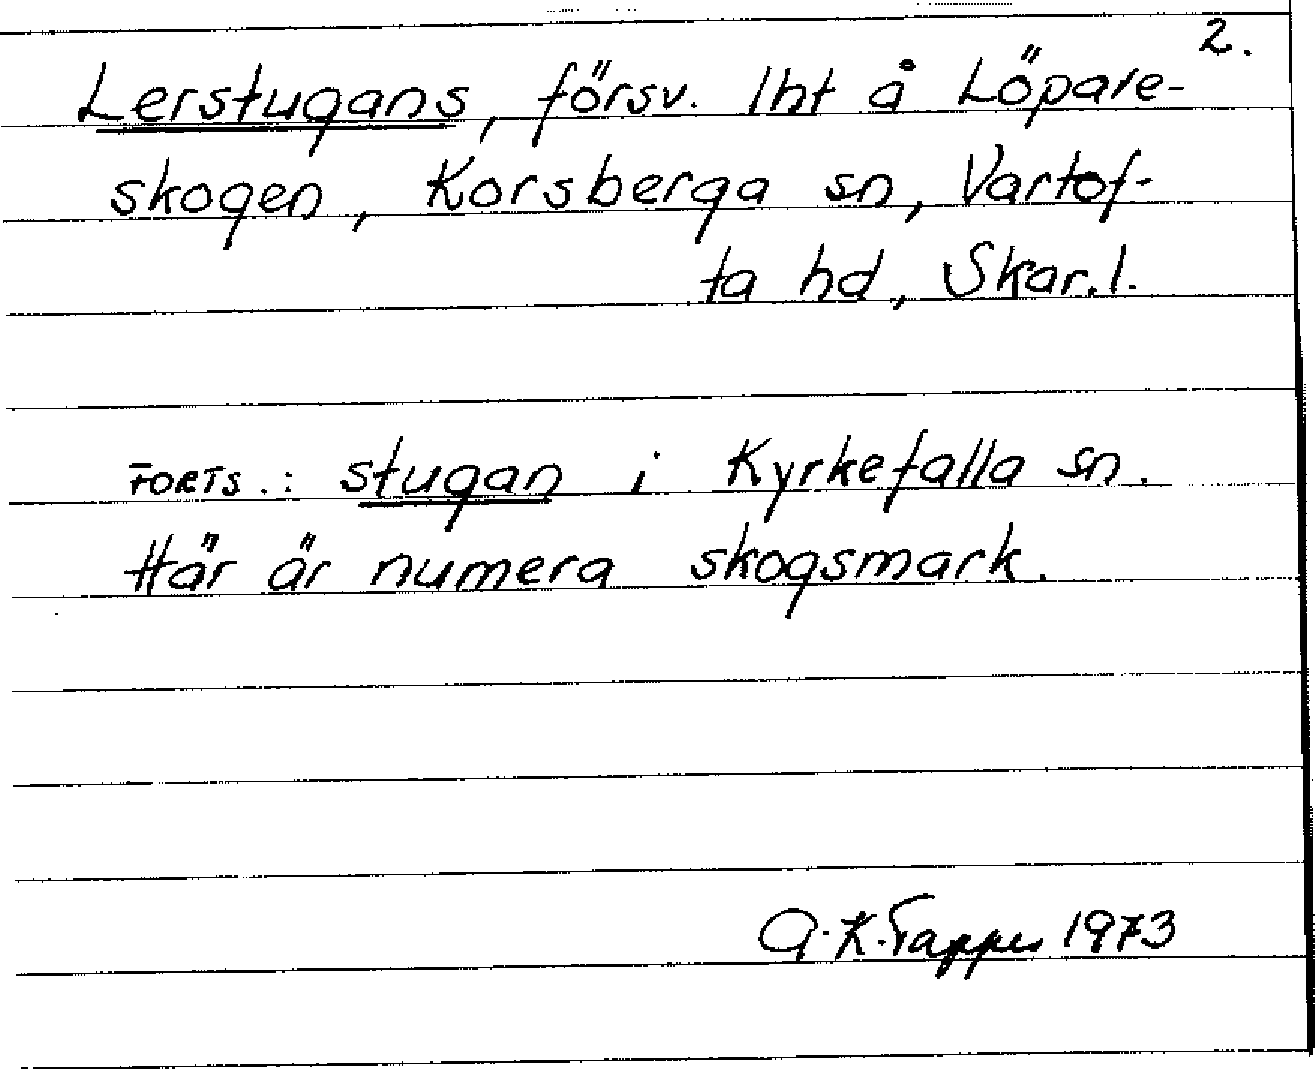 2.
Lerstugans, försv. lht å Löpare-
skogen, Korsberga sn, Vartof-
ta hd, Skar.l.
FORTS.: stugan i Kyrkefalla sn.
Här är numera skogsmark.
A.K. Tapper 1973